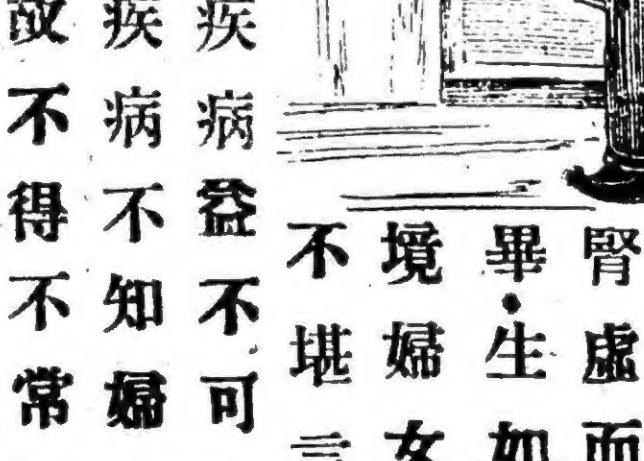 腎虛而
畢生如
境婦女
不堪言
疾病益不可
疾病不知婦
故不得不常